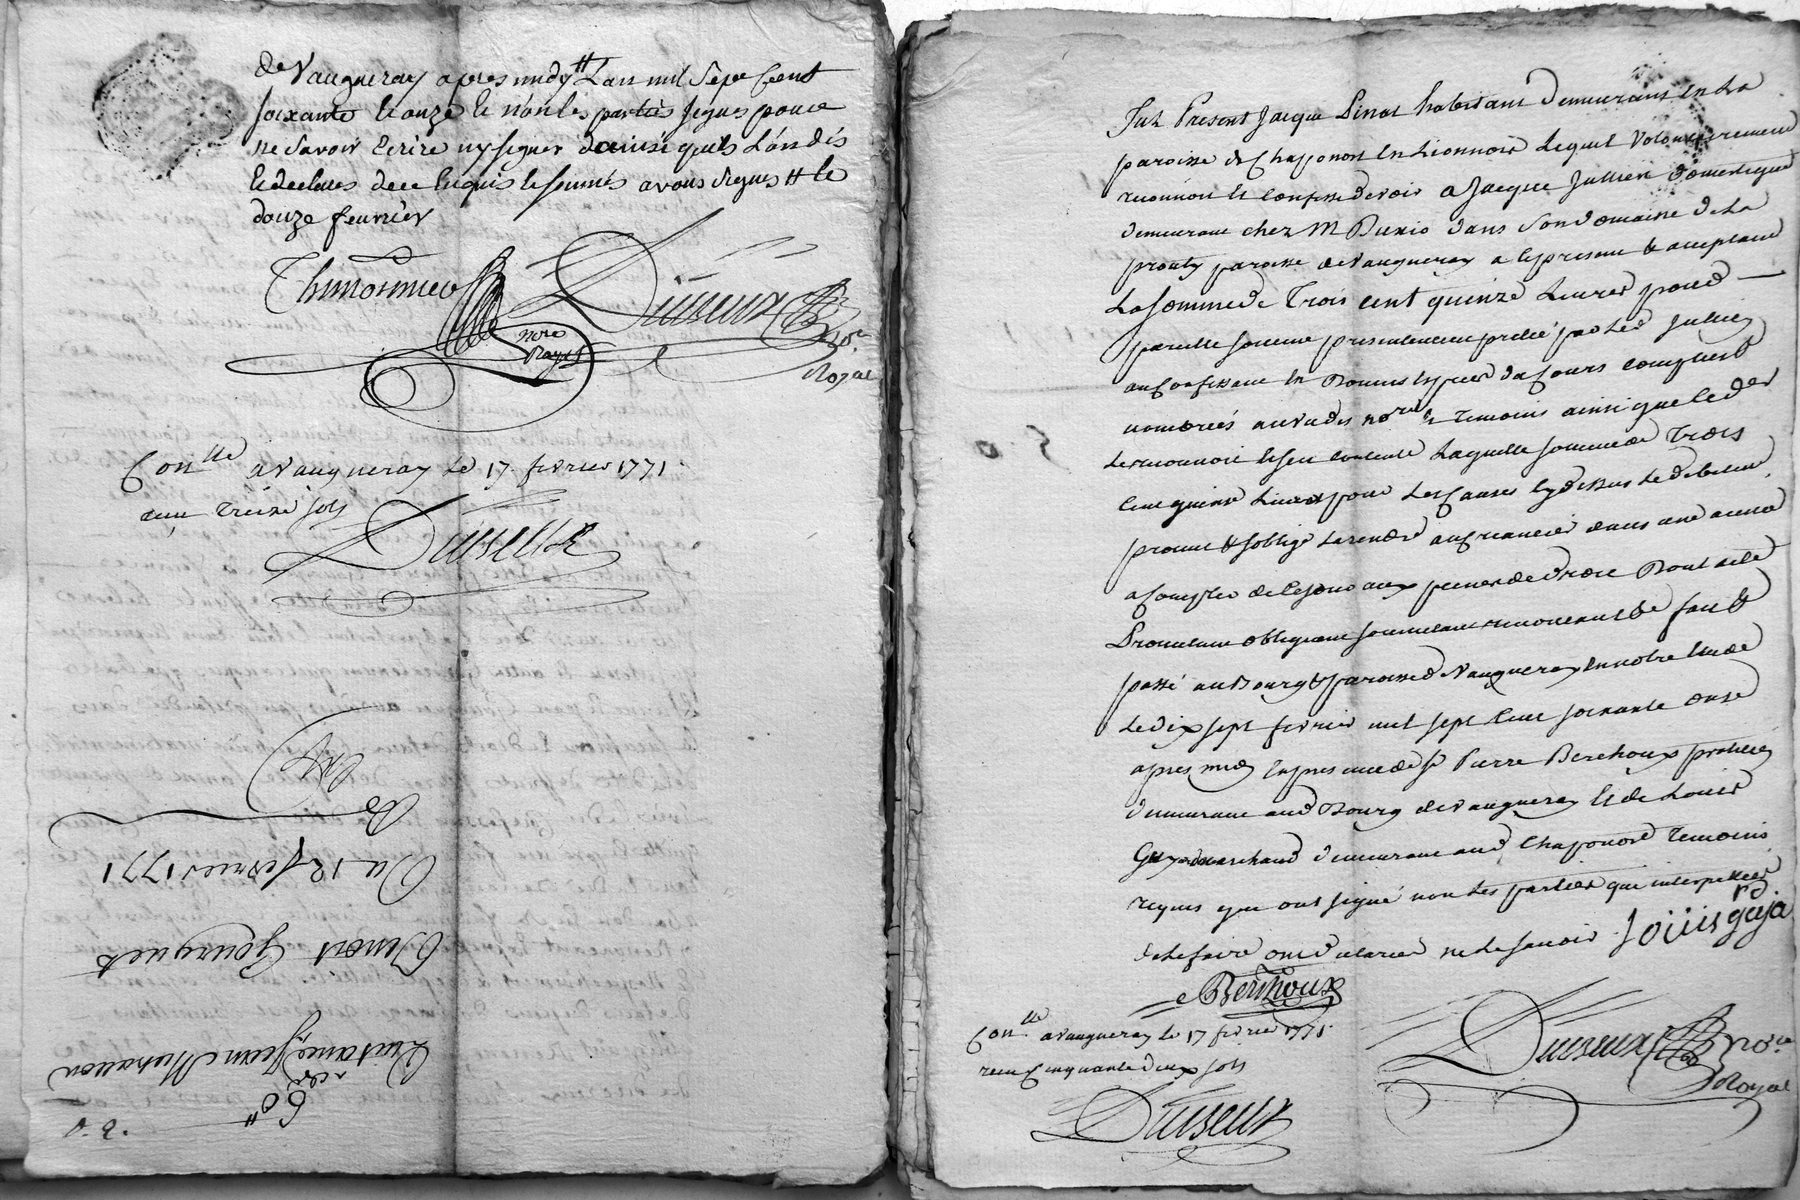 de Vaugneray apres midy # Lan mil sept cent
soixante et onze et non les parties signes pour
ne savoir ecrire ny signer ainsi quils L'on dit
et declares de ce enquis et sommés avons signes # le
douze fevrier
Thimonnier
nore
Royal
Duiseux
nore
Royal
Conlle a Vaugneray Le 17 fevrier 1771.
reçu treize sols
Duiseux
60#
Quitance Jean Muraton
a
Benoit Gourguet
Du 12 fevrier 1771
Exp
Fut Present Jacque Pinat habitant demeurant en La
paroisse de Chaponost en Lionnois Lequel Volontairement
reconnoit et confesse devoir a Jacque Jullien domestique
demeurant chez M dans Son domaine de La
prouty paroisse de Vaugneray a ce present & acceptant
La somme de Trois cent quinze Livres pour
pareille somme presentement prété par Led Jullien
au Confessant en Bonnes especes du Cours comptées
nombrées au vu des nores & temoins ainsi que led
Le reconnoit et sen contente Laquelle somme de Trois
cent quinze Livres pour Les Causes cy dessus Le debiteur
promet & soblige La rendre au creancier dans une année
a Compter de ce jour aux peines de droit
Promettant obligeant soumettant renonceant & fait &
passé au Bourg & paroisse de Vaugneray en notre etude
Le dix sept fevrier mil sept cent soixante onze
apres midy en presence de sr Pierre Berthoux praticien
demeurant aud Bourg de Vaugneray et de Louis
Guy marchand demeurant aud Chaponost Temoins
requis que ont signé non Les parties que interpellées
de Le faire ont declarées ne Le savoir
Berthoux
Duiseux nore
Royal
Conlle a Vaugneray le 17 fevrier 1771.
recu Cinquante deux sols
Duiseux